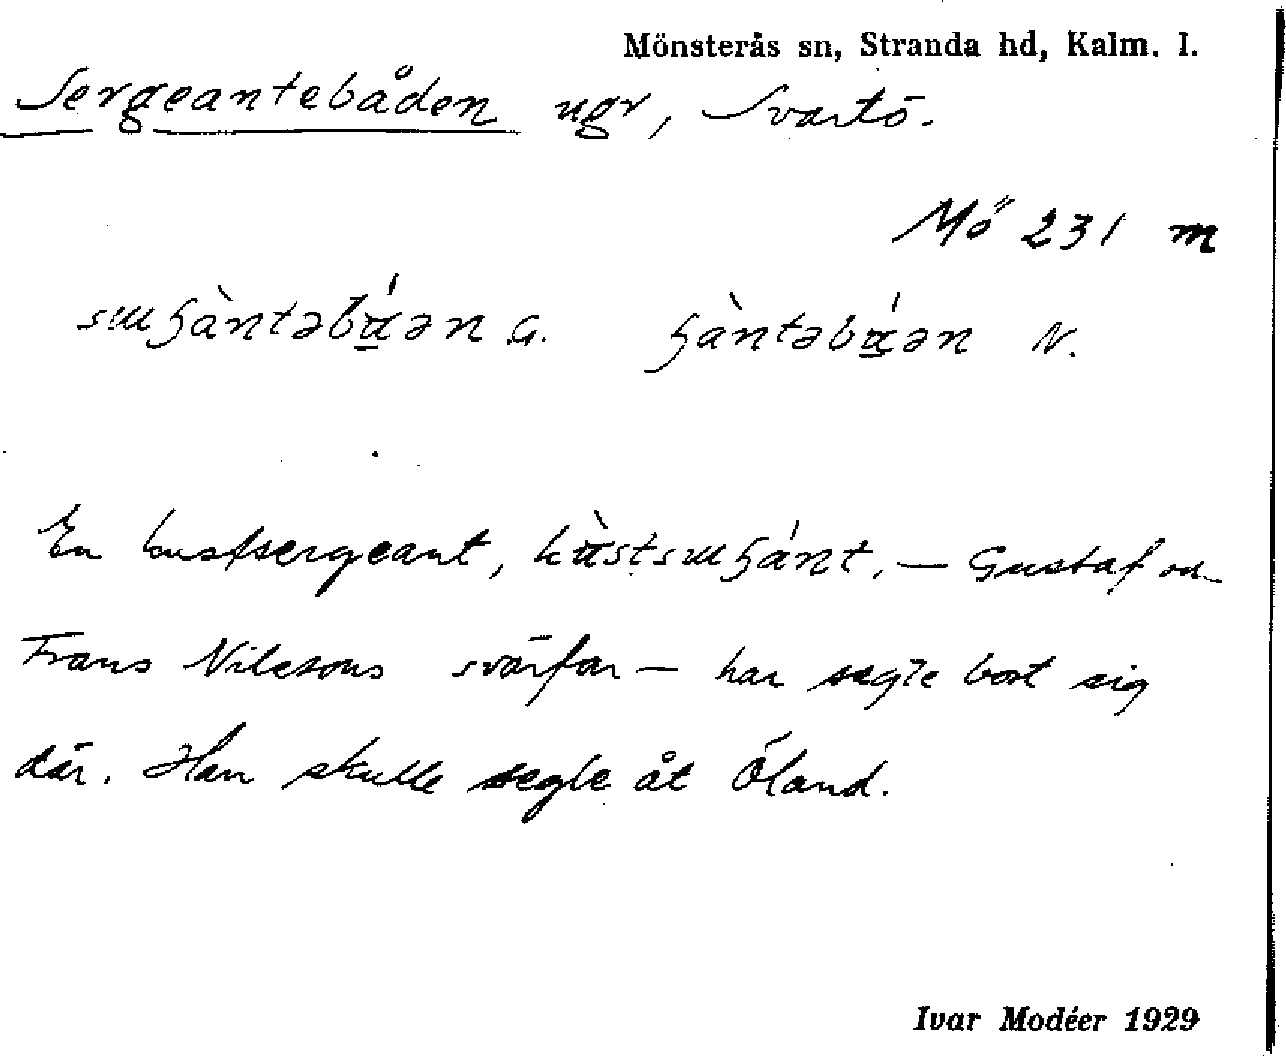 Mönsterås sn, Stranda hd, Kalm. l.
Sergeantebåden ugr, Svartö.
Mö 231 m
G. N.
En kustsergeant, — Gustaf och
Frans Nilssons svärfar — har segle bort sig
där. Han skulle segle åt Öland.
Ivar Modéer 1929